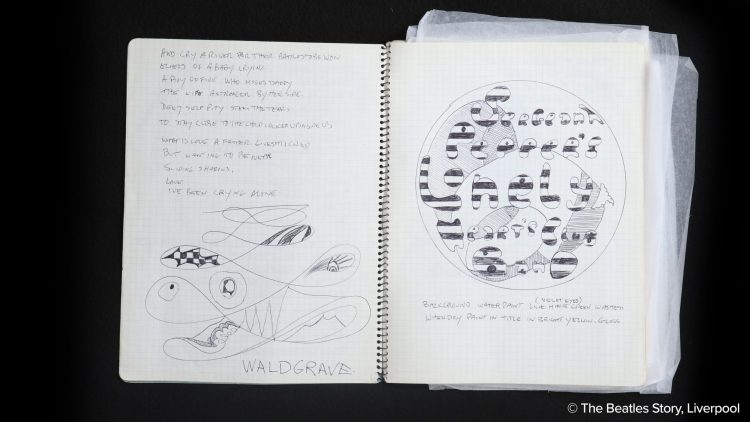 AND CRY A RIVER FOR THEIR BATTLES TO BE WON
ECHOES OF A BABY CRYING
A BOY OF FIVE WHO MISSES DADDY
THE LIFE A STRANGER BY HER SIDE
DENY SELF PITY STEM THE TEARS
TO STAY CLOSE TO THE CHILD LOCKED UP INSIDE US
WHAT IS LOVE A FATHER
BUT WANTING TO BE
SLIDING SHADOWS.
LOVE
I'VE BEEN CRYING ALONE
WALDGRAVE.
Sergeant
Pepper's
Lonely
Heart's Club
Band
(VIOLET EYES)
BACKGROUND WATER PAINT LIME MAKE GREEN WASTED
WHEN DRY PAINT IN TITLE IN BRIGHT YELLOW. GLOSS
© The Beatles Story, Liverpool